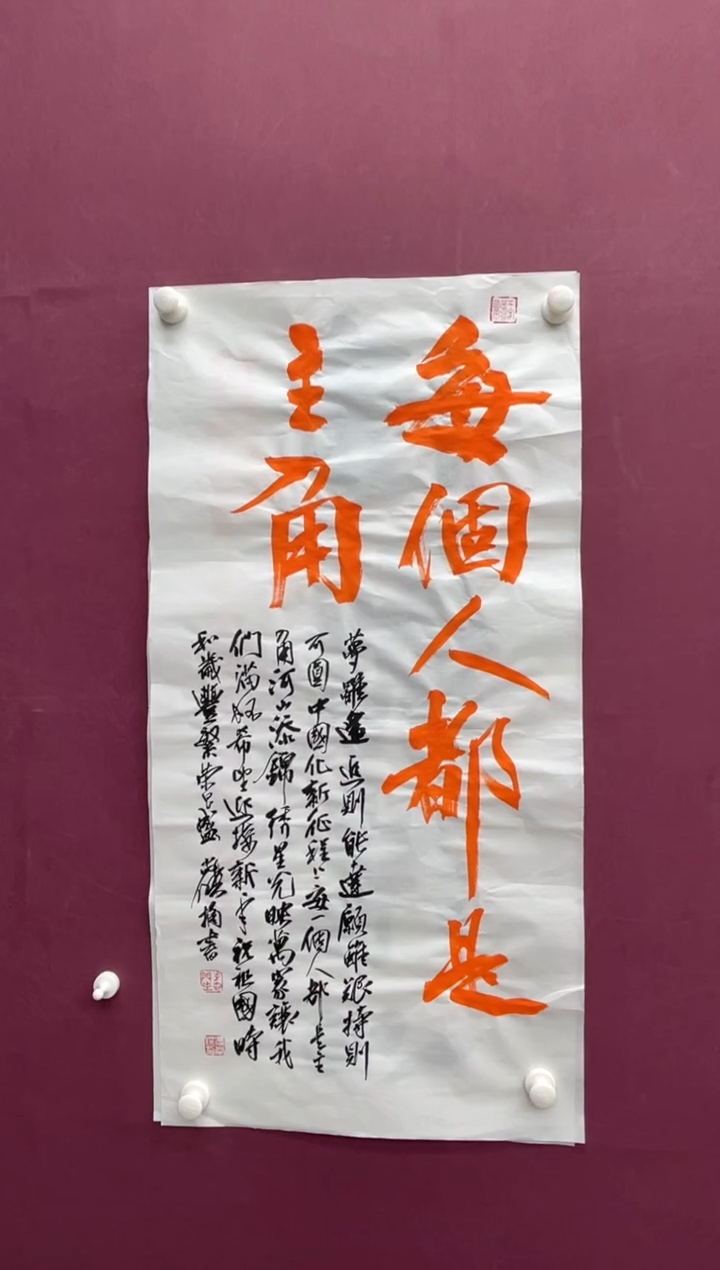 每個人都是
主角
夢雖遥追則能達願雖艱持則
可圓中國化新征程上每一個人都是主
角河山添錦綉星光映萬家讓我
們滿懷希望迎接新年祝祖國時
和歲豐繁荣昌盛 摘書